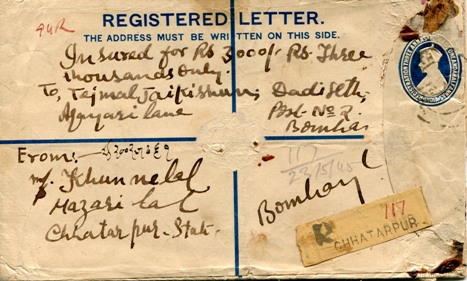 REGISTERED LETTER.
THE ADDRESS MUST BE WRITTEN ON THIS SIDE.
Insured for Rs 3000/- Rs. Three
thousands only.
To, Tejmal Jaikishun, Dadi Seth,
Agyari lane
Post. No 2.
Bombay
From:-
m/s. Khunnelal
Hazari Lal
Chhatarpur-State.
117
23/5/45
Bombay
R 117
CHHATARPUR